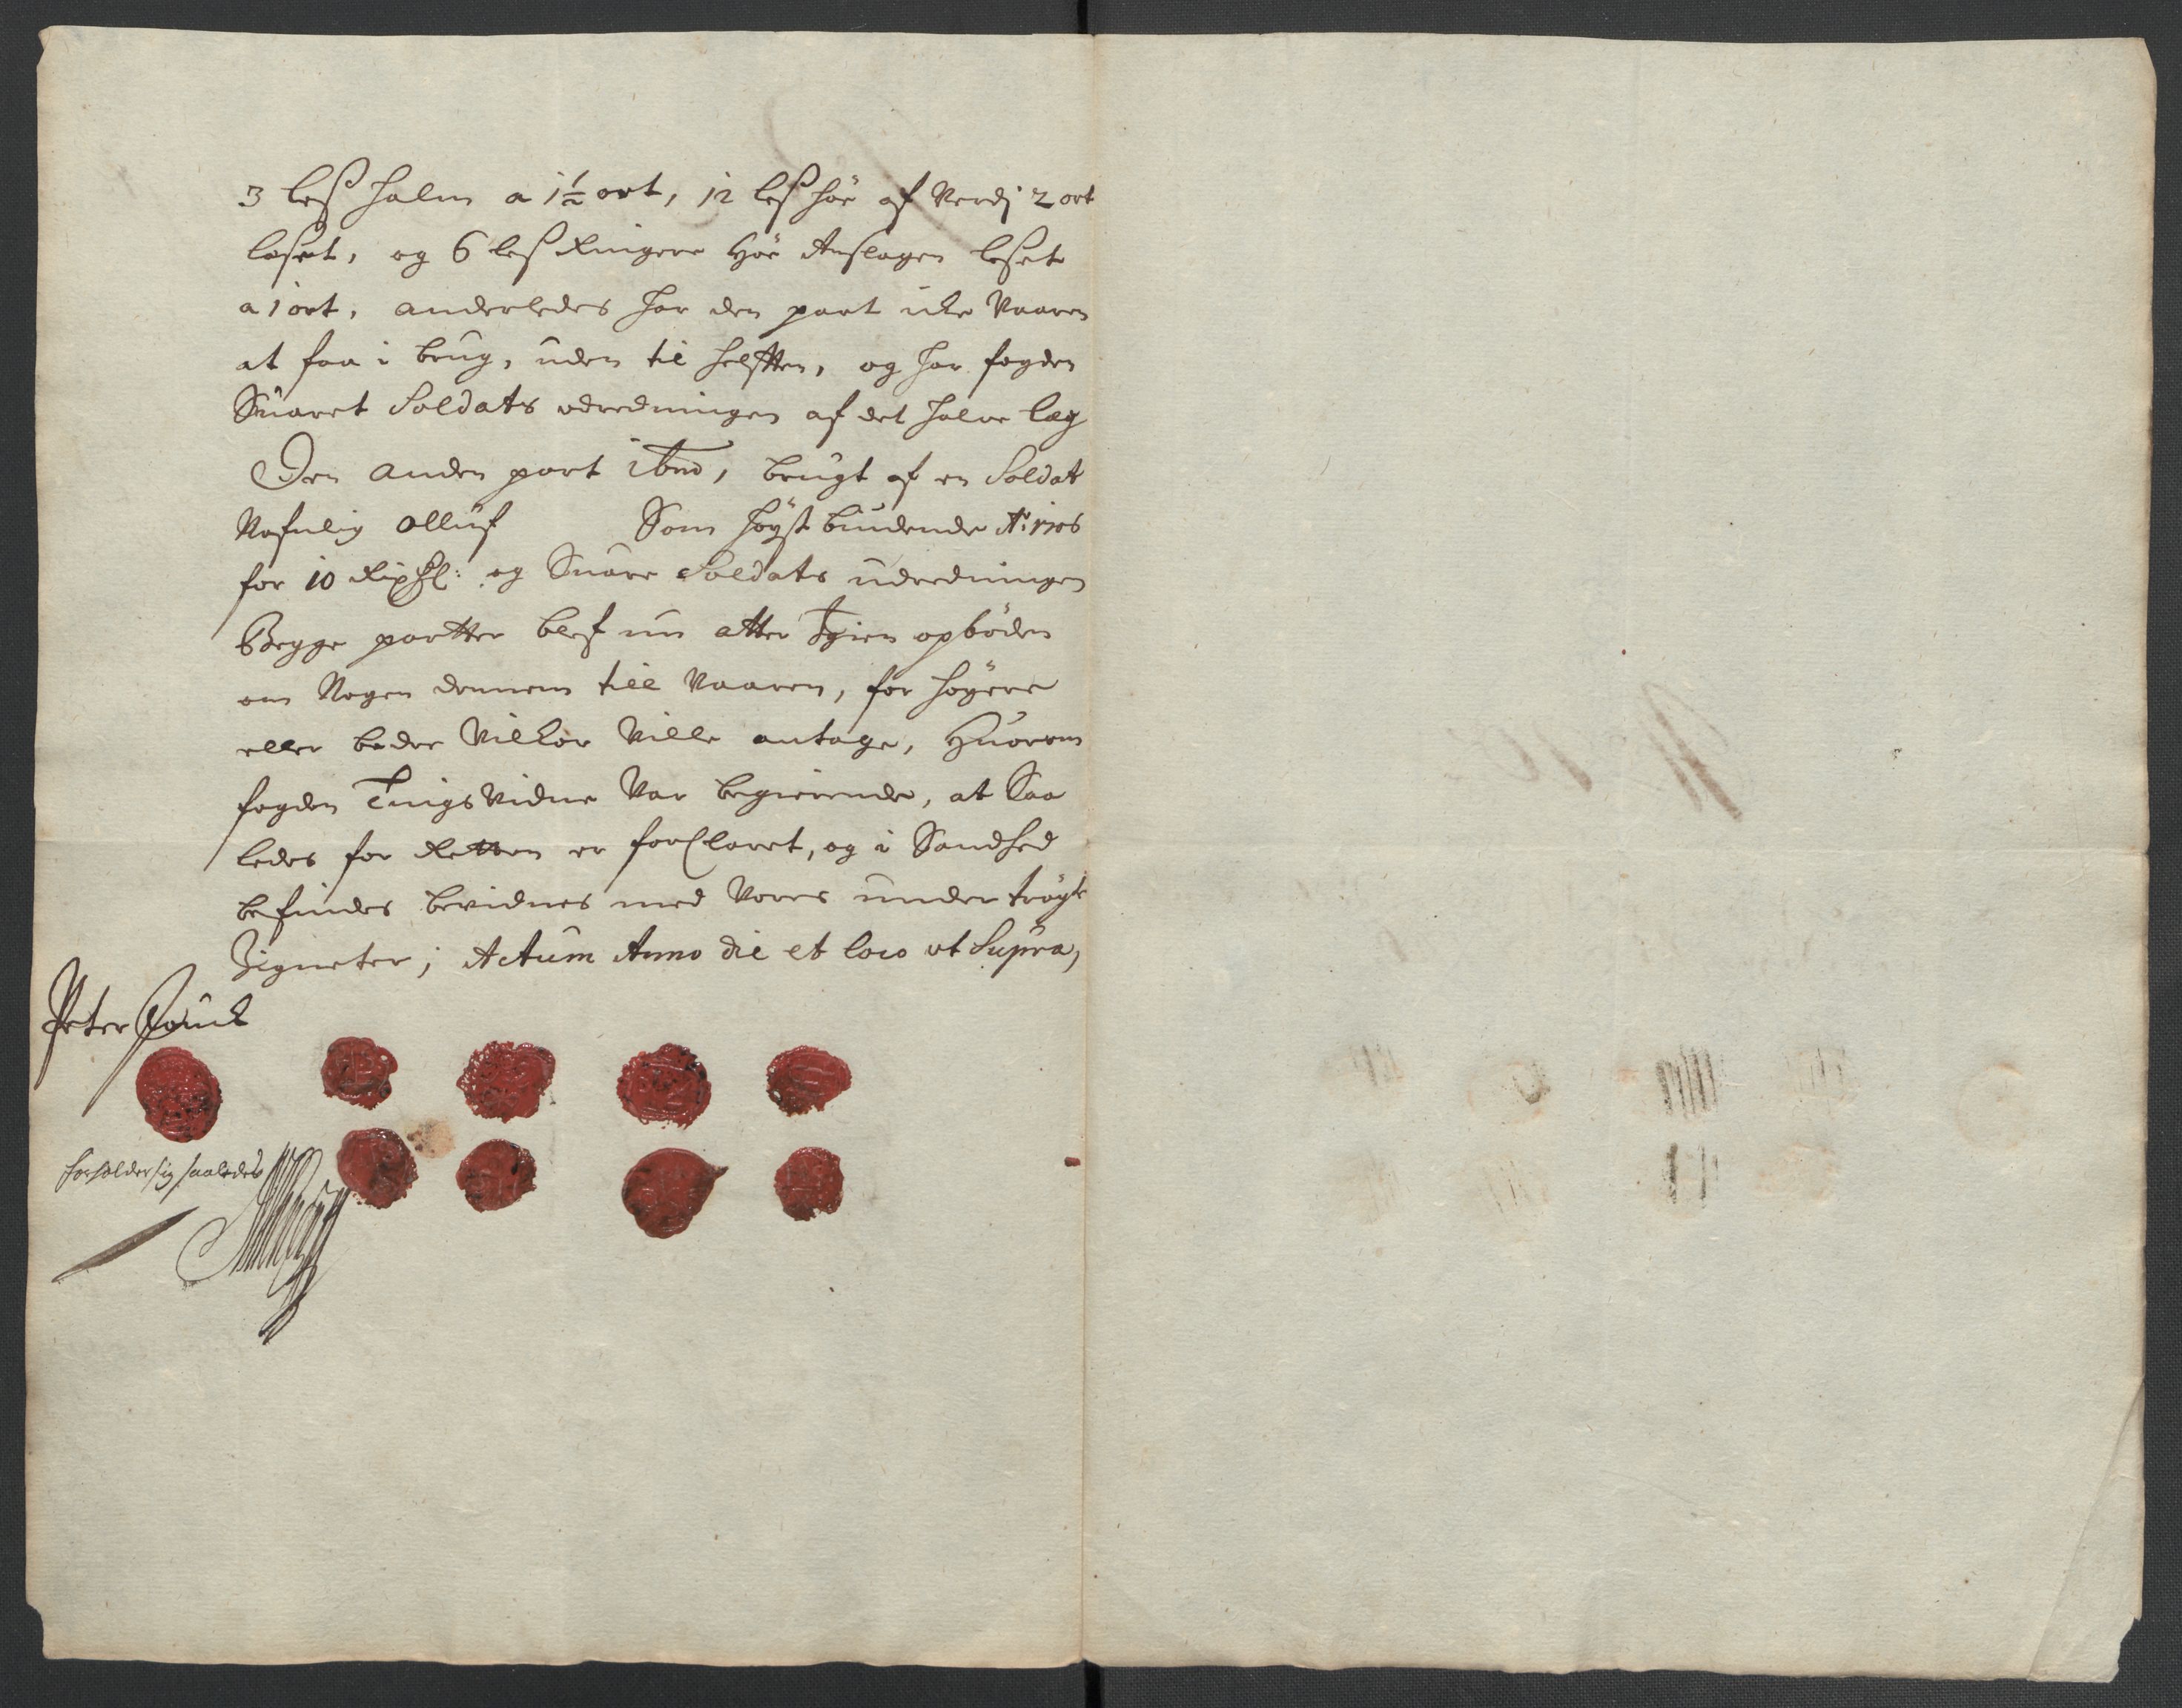 3 less halm a 1½ ort, 12 less höe af verdj 2 ort
læset, og 6 less Ringere Höe Anslagen lesset
a 1 ort, anderledes har den part icke vaaren
at faa i brug, uden til helfften, og har fogden
Suaret Soldats udredningen af det halve læg
Den anden part ibm, brugt af en Soldat
Nafnlig Olluf Som höyst biudende Ao: 1706
for 10 Rixdl: og Suare Soldats udredningen
Begge partter blef nu atter Igien opböden
om Nogen dennem till vaaren, for höyere
eller bedre Vilkor Ville antage, Huorom
fogden Tings Vidne Var begierende, at Saa
ledes for Retten er forClaret, og i Sandhed
befindes bevidnes med Vores under tröyte
Zigneter; Actum Anno die et loco ut Supra,
Peter
forholder sig saaledes